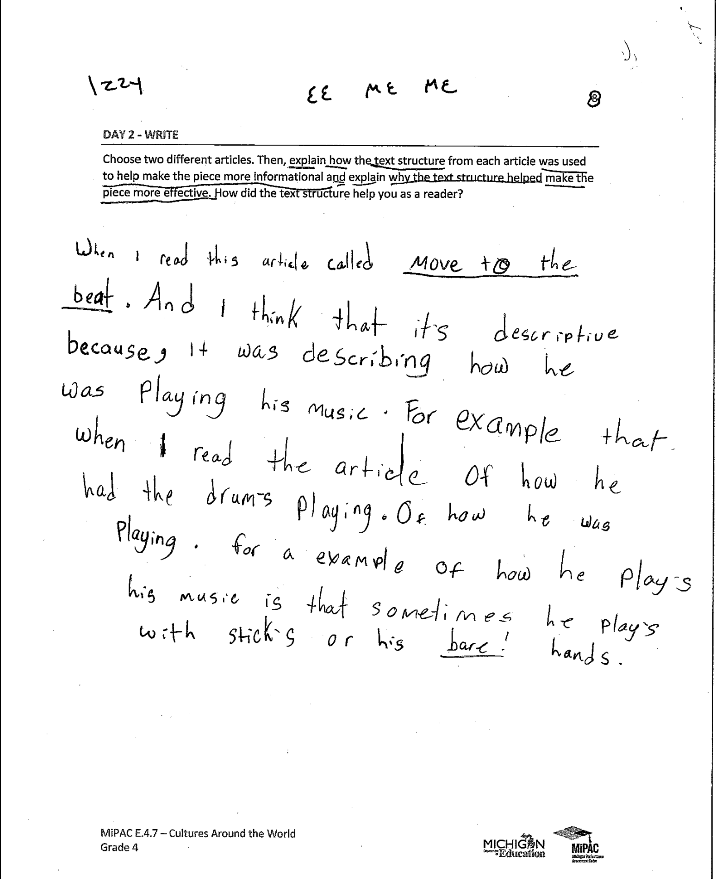 1224 EE ME ME
DAY 2 - WRITE
Choose two different articles. Then, explain how the text structure from each article was used
to help make the piece more informational and explain why the text structure helped make the
piece more effective. How did the text structure help you as a reader?
When I read this article called Move to the
beat. And I think that it's descriptive
because, it was describing how he
was Playing his music. For example that
when I read the article Of how he
had the drum's Playing. Of how he was
Playing. for a example of how he Play's
his music is that sometimes he play's
with stick's or his bare! hands.
MiPAC E.4.7 – Cultures Around the World
Grade 4
MICHIGAN
Education
MiPAC